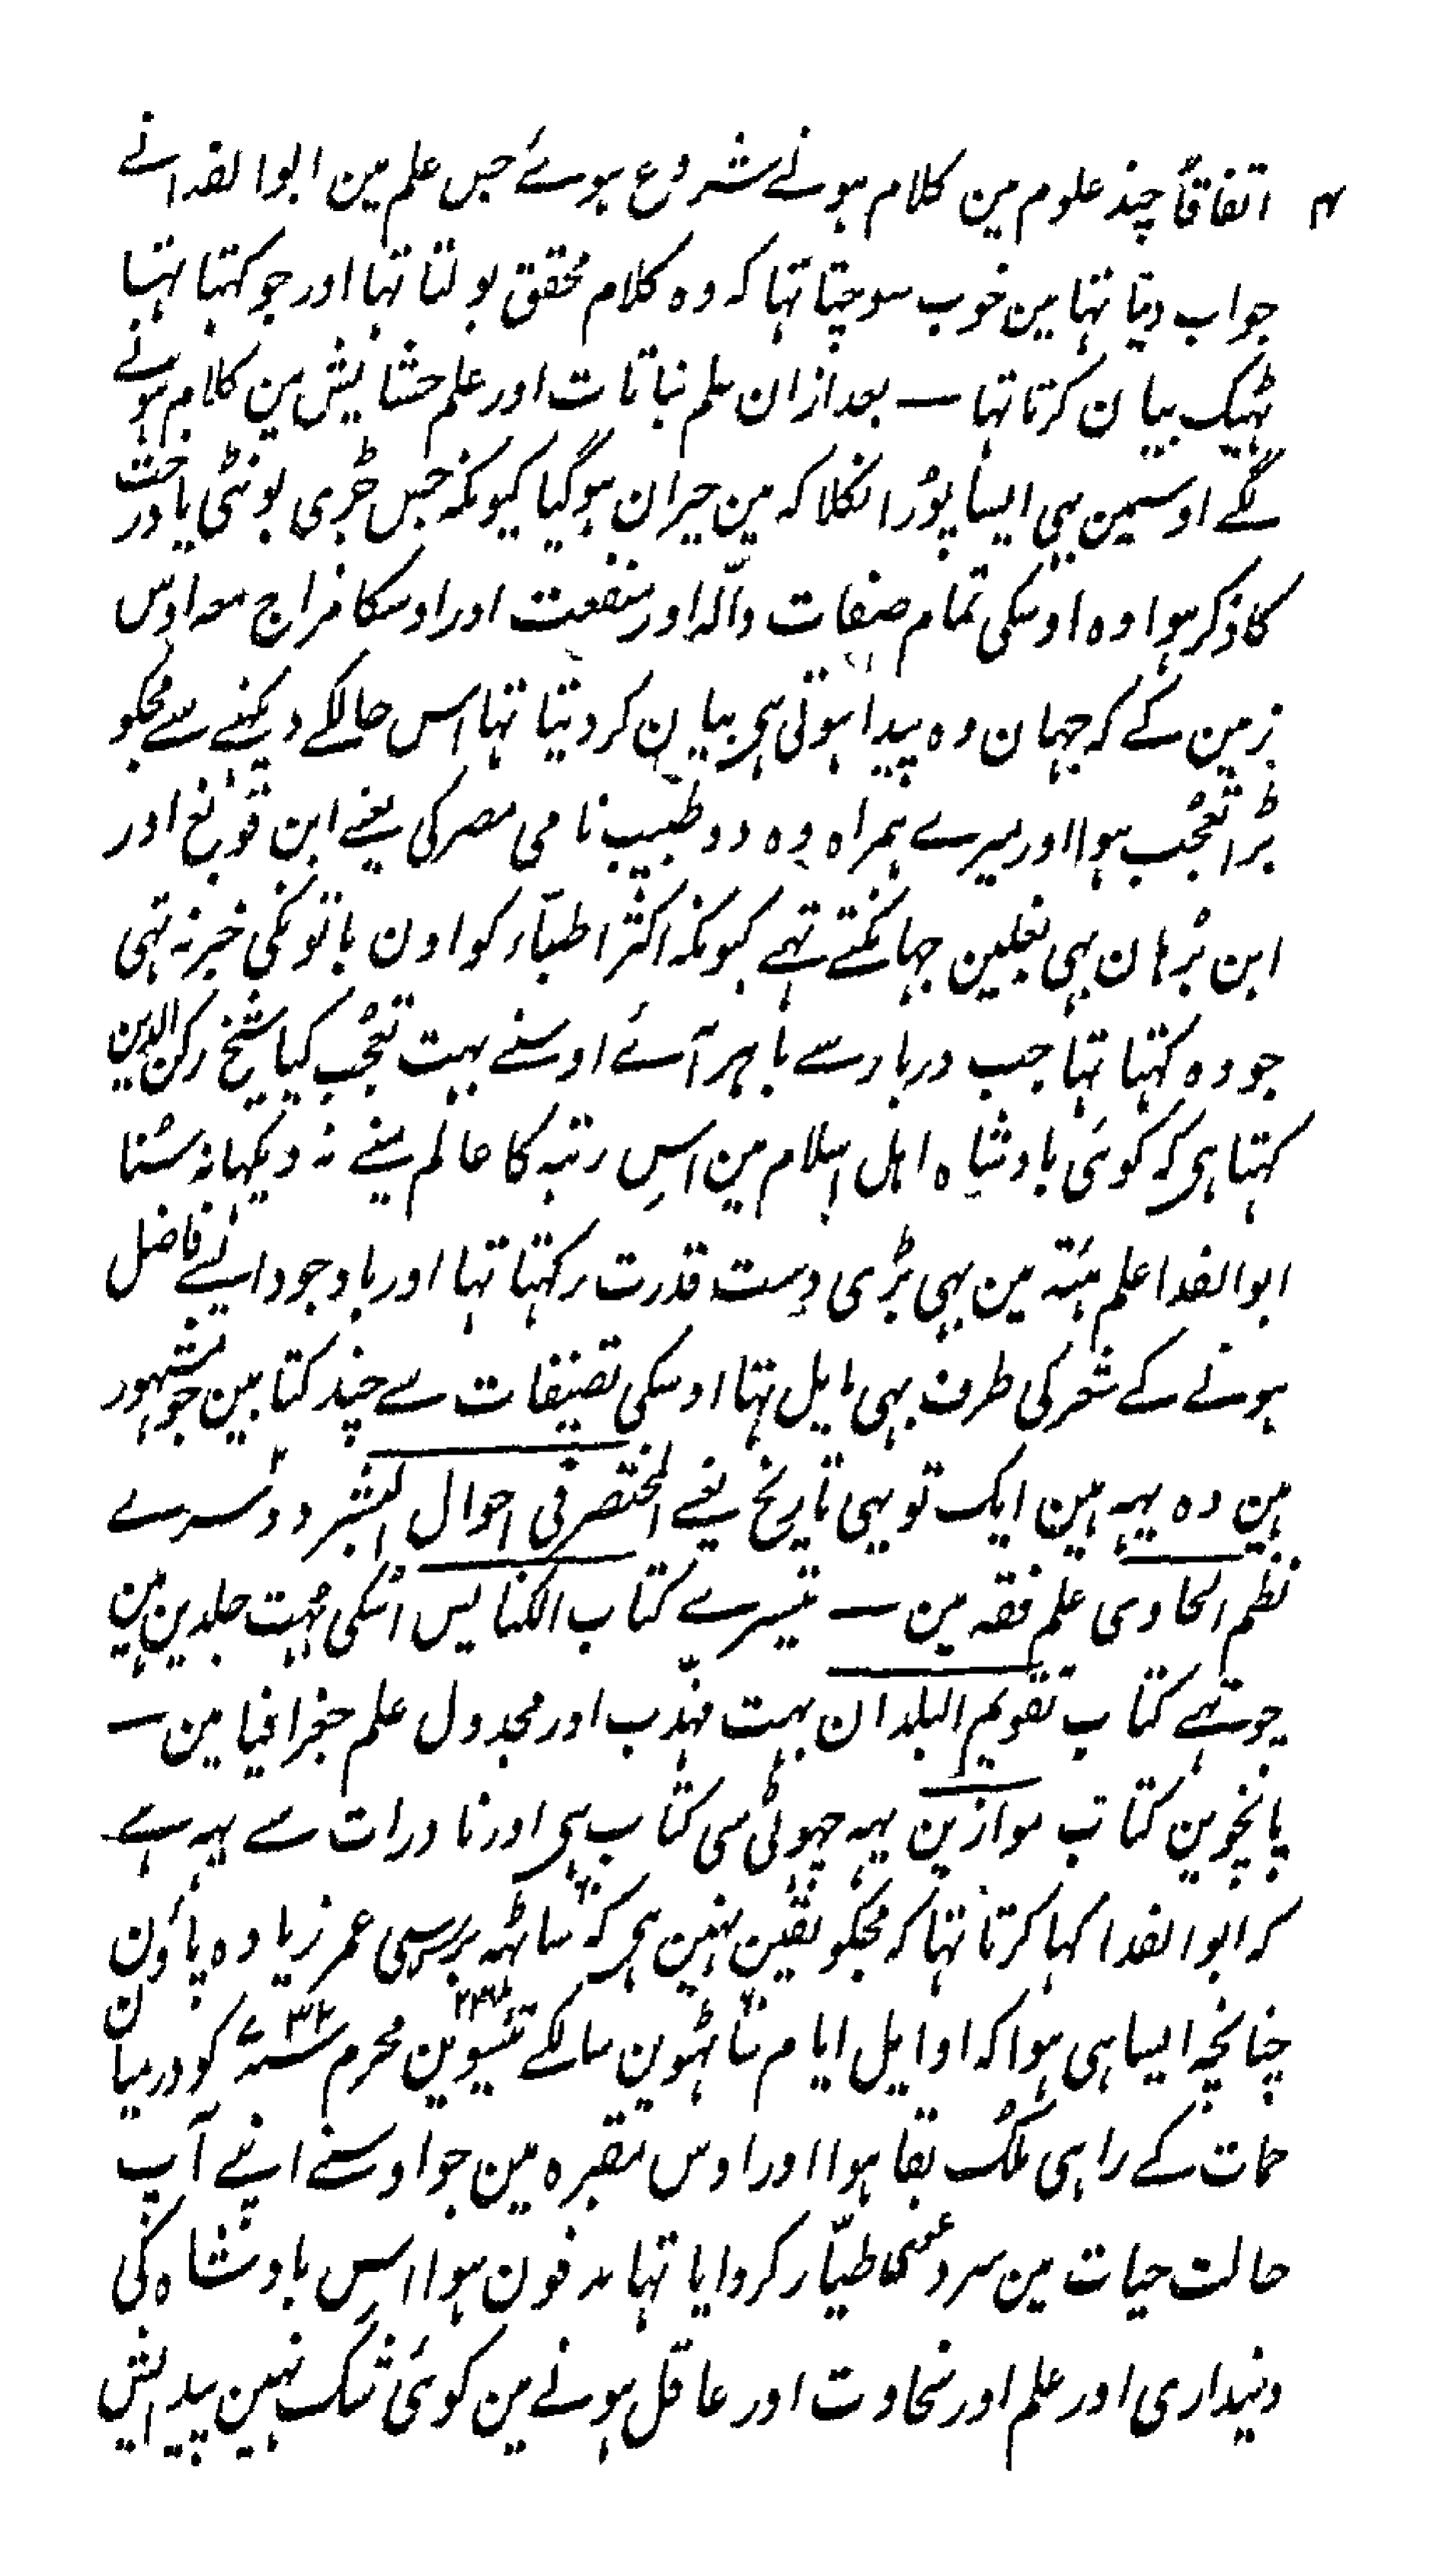 ۴ اتفاقاً چند علوم مین کلام ہونے شروع ہوئے جس علم مین ابوالفدا نے
جواب دیتا تہا مین خوب سوچتا تہا کہ وہ کلام محقق بولتا تہا اور جو کہتا تہا
ٹہیک بیان کرتا تہا — بعد ازان علم نباتات اور علم حشایش مین کلام ہونے
لگے اوسمین بہی ایسا پورا نکلا کہ مین حیران ہوگیا کیونکہ جس جڑی بونٹی یا درخت
کا ذکر ہوا وہ اوسکی تمام صفات دالّہ اور منفعت اور اوسکا مزاج معہ اوس
زمین کے کہ جہان وہ پیدا ہوتی ہی بیان کر دیتا تہا اس حالکے دیکہنے سے مجکو
بڑا تعجّب ہوا اور میرے ہمراہ وہ دو طبیب نامی مصر کی یعنے ابن قوبع اور
ابن بُرہان بہی بغلین جہانکتے تہے کیونکہ اکثر اطبّاء کو اون باتونکی خبر نہ تہی
جو وہ کہتا تہا جب دربار سے باہر آئے اوسنے بہت تعجّب کیا شیخ رکن الدین
کہتا ہی کہ کوئی بادشاہ اہل اسلام مین اس رتبہ کا عالم مینے نہ دیکہا نہ سُنا
ابوالفدا علم ہئیۃ مین بہی بڑی دست قدرت رکہتا تہا اور باوجود ایسے فاضل
ہونے کے شعر کی طرف بہی مایل تہا اوسکی تصنیفات سے چند کتابین جو مشہور
ہین وہ یہہ ہین ایک تو یہی تاریخ یعنے المختصر فی احوال البشر ۲ دوسرے
نظم الحاوی علم فقہ مین — تیسرے کتاب الکنایس اسکی بہت جلدین ہین
چوتہے کتاب تقویم البلدان بہت مہذّب اور مجدول علم جغرافیا مین —
پانچوین کتاب موازین یہہ چہوٹی سی کتاب ہی اور نادرات سے یہہ ہے
کہ ابوالفدا کہا کرتا تہا کہ مجکو یقین نہین ہی کہ ساٹہہ برس سی عمر زیادہ پاؤن
چنانچہ ایسا ہی ہوا کہ اوایل ایام ساٹہوین سالکے تئیسوین محرم سنہ ۷۳۲ کو درمیان
حمات کے راہی ملک بقا ہوا اور اوس مقبرہ مین جو اوسنے اپنے آپ
حالت حیات مین طیّار کروایا تہا مدفون ہوا اس بادشاہ کی
دینداری اور علم اور سخاوت اور عاقل ہونے مین کوئی شک نہین پیدایش